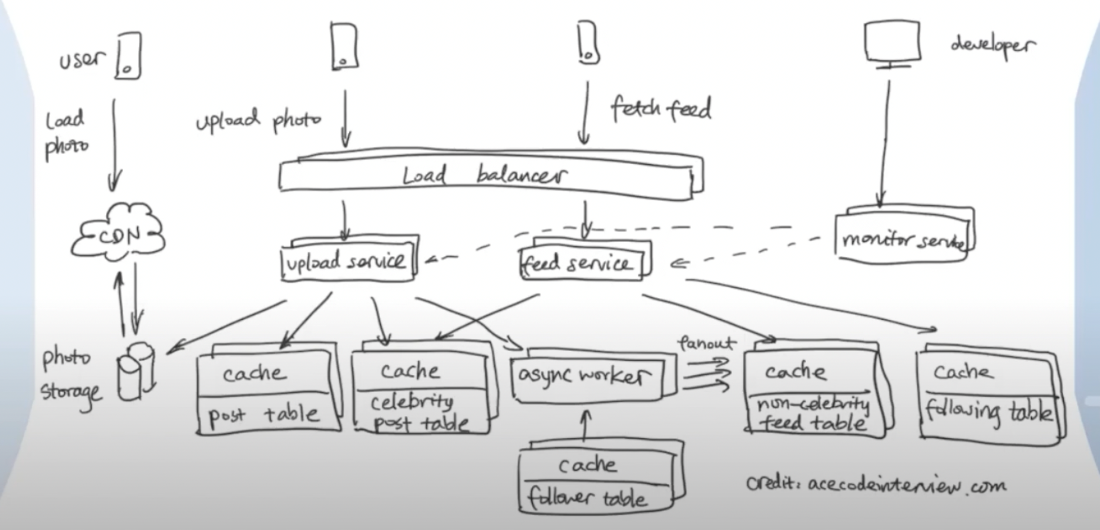 user
developer
Load
photo
upload photo
fetch feed
Load balancer
CDN
upload service
feed service
monitor service
photo
storage
cache
post table
cache
celebrity
post table
async worker
fanout
cache
non-celebrity
feed table
cache
following table
cache
follower table
credit: acecodeinterview.com